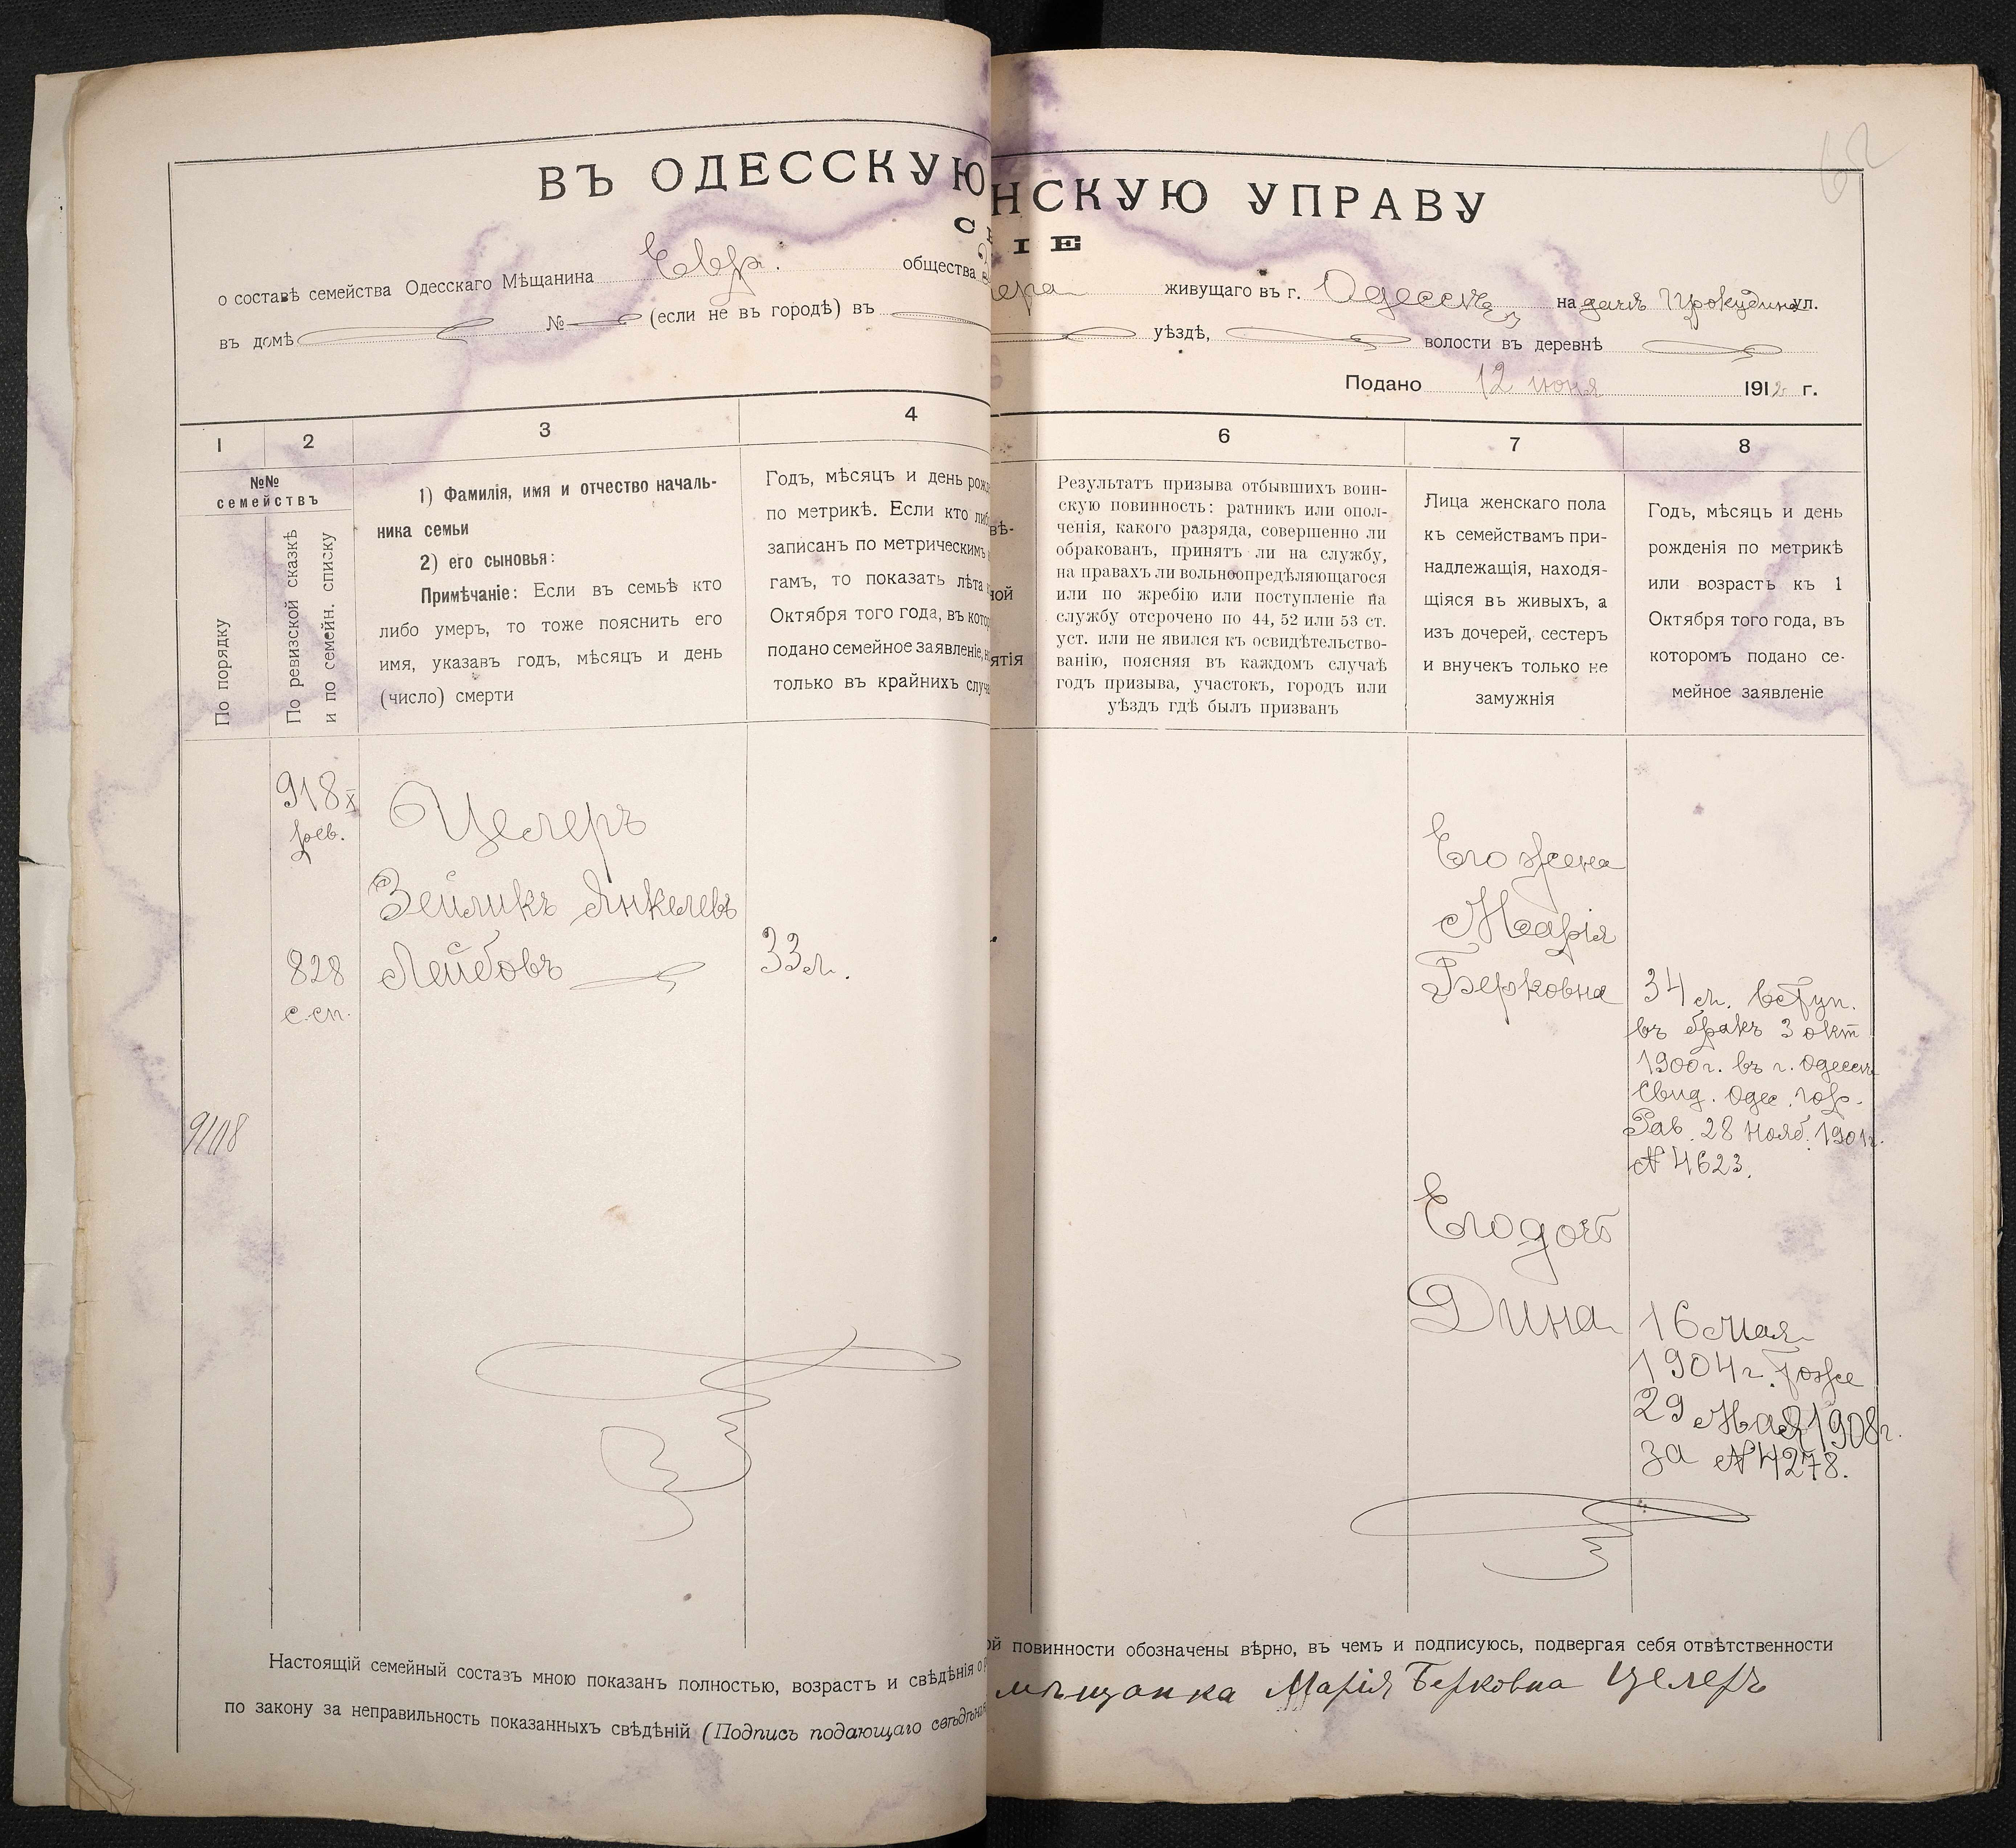 62
ВЪ ОДЕССКУЮ
НСКУЮ УПРАВУ
С
ІЕ
о составѣ семейства Одесскаго Мѣщанина Евр. общества
ера живущаго въ г. Одессѣ на дачѣ Прокудина ул.
въ домѣ № (если не въ городѣ) въ
уѣздѣ, волости въ деревнѣ
Подано 12 июня 1912 г.
1 2 3 4
6 7 8
№№
семействъ
По порядку
По ревизской сказкѣ
и по семейн. списку
1) Фамилія, имя и отчество началь-
ника семьи
2) его сыновья:
Примѣчаніе: Если въ семьѣ кто
либо умеръ, то тоже пояснить его
имя, указавъ годъ, мѣсяцъ и день
(число) смерти
Годъ, мѣсяцъ и день рож
по метрикѣ. Если кто либ
записанъ по метрическимъ
гамъ, то показать лѣта
Октября того года, въ кото
подано семейное заявленіе,
только въ крайнихъ случ
вѣ-
ной
ятія
Результатъ призыва отбывшихъ воин-
скую повинность: ратникъ или опол-
ченія, какого разряда, совершенно ли
обракованъ, принятъ ли на службу,
на правахъ ли вольноопредѣляющагося
или по жребію или поступленіе на
службу отсрочено по 44, 52 или 53 ст.
уст. или не явился къ освидѣтельство-
ванію, поясняя въ каждомъ случаѣ
годъ призыва, участокъ, городъ или
уѣздъ гдѣ былъ призванъ
Лица женскаго пола
къ семействамъ при-
надлежащія, находя-
щіяся въ живыхъ, а
изъ дочерей, сестеръ
и внучекъ только не
замужнія
Годъ, мѣсяцъ и день
рожденія по метрикѣ
или возрастъ къ 1
Октября того года, въ
которомъ подано се-
мейное заявленіе
918 X
рев.
828
с.сп.
9108
Целеръ
Зейликъ Янкелевъ
Лейбовъ
33 л.
Его жена
Марія
Берковна
34 л. вступ.
въ бракъ 3 окт
1900 г. въ г. Одессѣ
Свид. Одес. гор.
Рав. 28 Нояб. 1901 г.
№ 4623.
Его дочь
Дина
16 мая
1904 г. тоже
29 Мая 1908 г.
за № 4278.
Настоящій семейный составъ мною показанъ полностью, возрастъ и свѣдѣнія о
ой повинности обозначены вѣрно, въ чемъ и подписуюсь, подвергая себя отвѣтственности
по закону за неправильность показанныхъ свѣдѣній (Подпись подающаго
мѣщанка Марія Берковна Целеръ